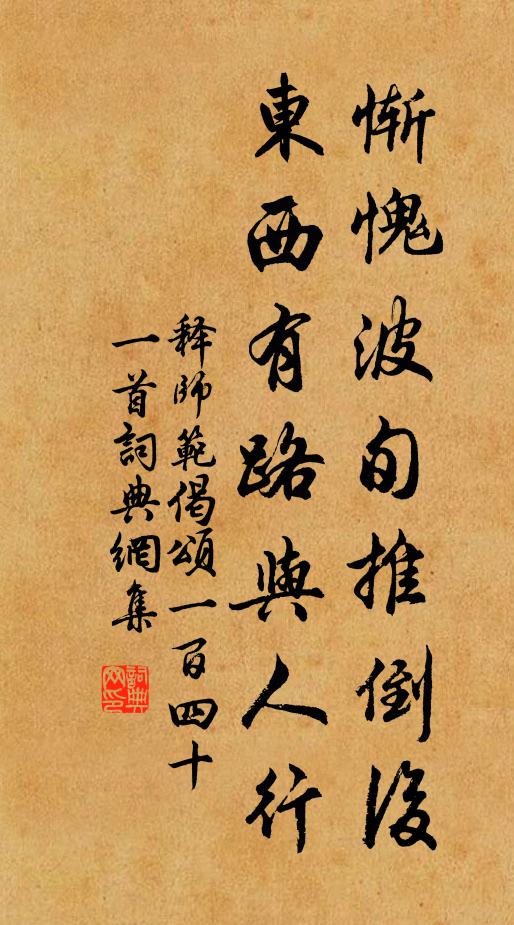 慚愧波旬推倒後
東西有路與人行
释師範偈頌一百四十
一首詞典網集
詞典
网印